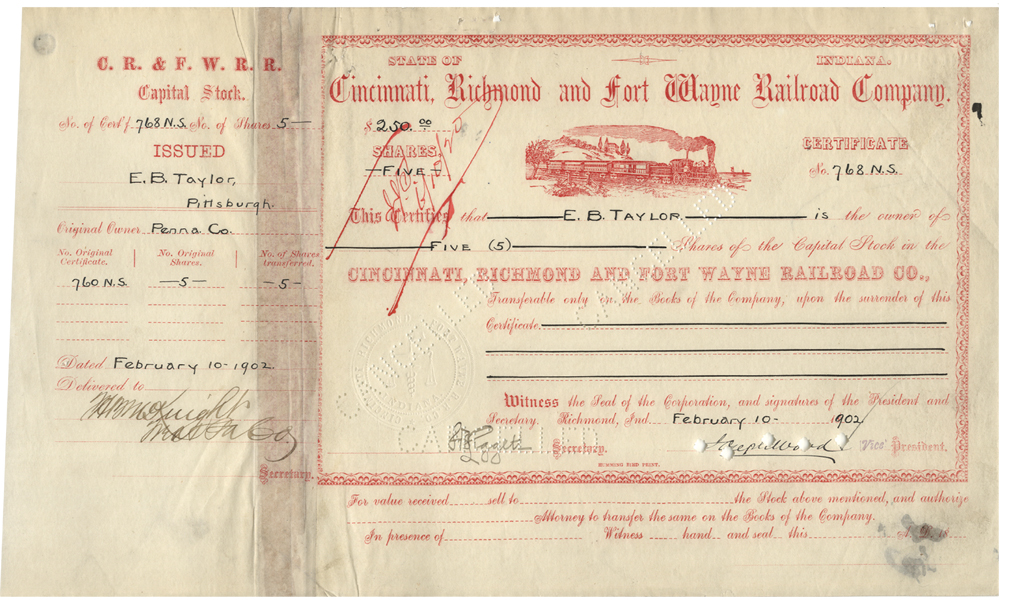 C. R. & F. W. R. R.
Capital Stock.
No. of Cert'f. 768 N.S. No. of Shares 5
ISSUED
E. B. Taylor,
Pittsburgh.
Original Owner Penna Co.
No. Original Certificate. No. Original Shares. No. of Shares transferred.
760 N.S. —5— —5—
Dated February 10-1902
Delivered to
Secretary.
STATE OF INDIANA.
Cincinnati, Richmond and Fort Wayne Railroad Company.
$ 250.00
SHARES
FIVE
CERTIFICATE
No. 768 N.S.
This Certifies that E. B. TAYLOR. is the owner of
FIVE (5) Shares of the Capital Stock in the
CINCINNATI, RICHMOND AND FORT WAYNE RAILROAD CO.,
Transferable only on the Books of the Company, upon the surrender of this
Certificate.
Witness the Seal of the Corporation, and signatures of the President and
Secretary. Richmond, Ind. February 10- 1902
Secretary. Vice President.
CANCELLED
CANCELLED
CANCELLED
For value received sell to the Stock above mentioned, and authorize
Attorney to transfer the same on the Books of the Company.
In presence of Witness hand and seal this A. D. 18